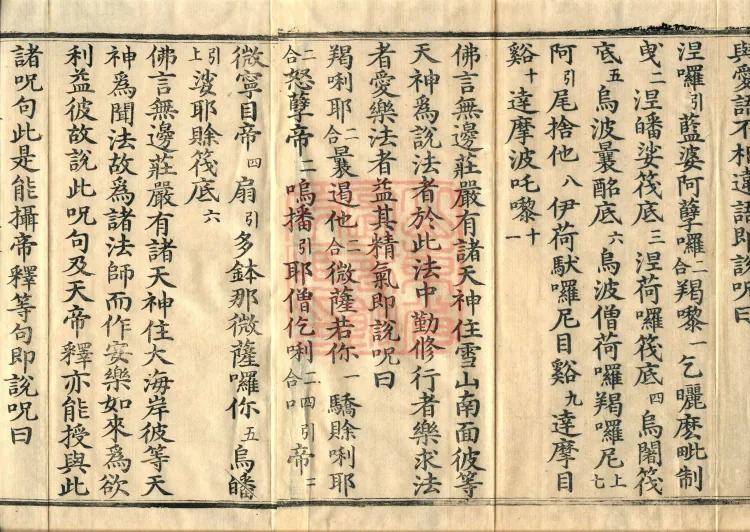 與愛語不相違語即說呪曰
涅囉引藍婆阿孽囉二合羯嚟一乞曬麽毗制
曳二涅皤娑筏底三涅荷囉筏底四烏闍筏
底五烏波曩酩底六烏波僧荷囉羯囉尼上七
阿引尾捨他八伊荷馱囉尼目谿九達摩目
谿十達摩波吒嚟十一
佛言無邊莊嚴有諸天神住雪山南面彼等
天神為說法者於此法中勤修行者樂求法
者愛樂法者益其精氣即說呪曰
羯唎耶二合曩遏他二合微薩若你一驕賒唎耶
二合怒孽帝二嗚播引耶僧仡唎二合四引帝三
微寧目帝四扇引多鉢那微薩囉你五烏皤
引上娑耶賒筏底六
佛言無邊莊嚴有諸天神住大海岸彼等天
神為聞法故為諸法師而作安樂如來為欲
利益彼故說此呪句及天帝釋亦能授與此
諸呪句此是能攝帝釋等句即說呪曰